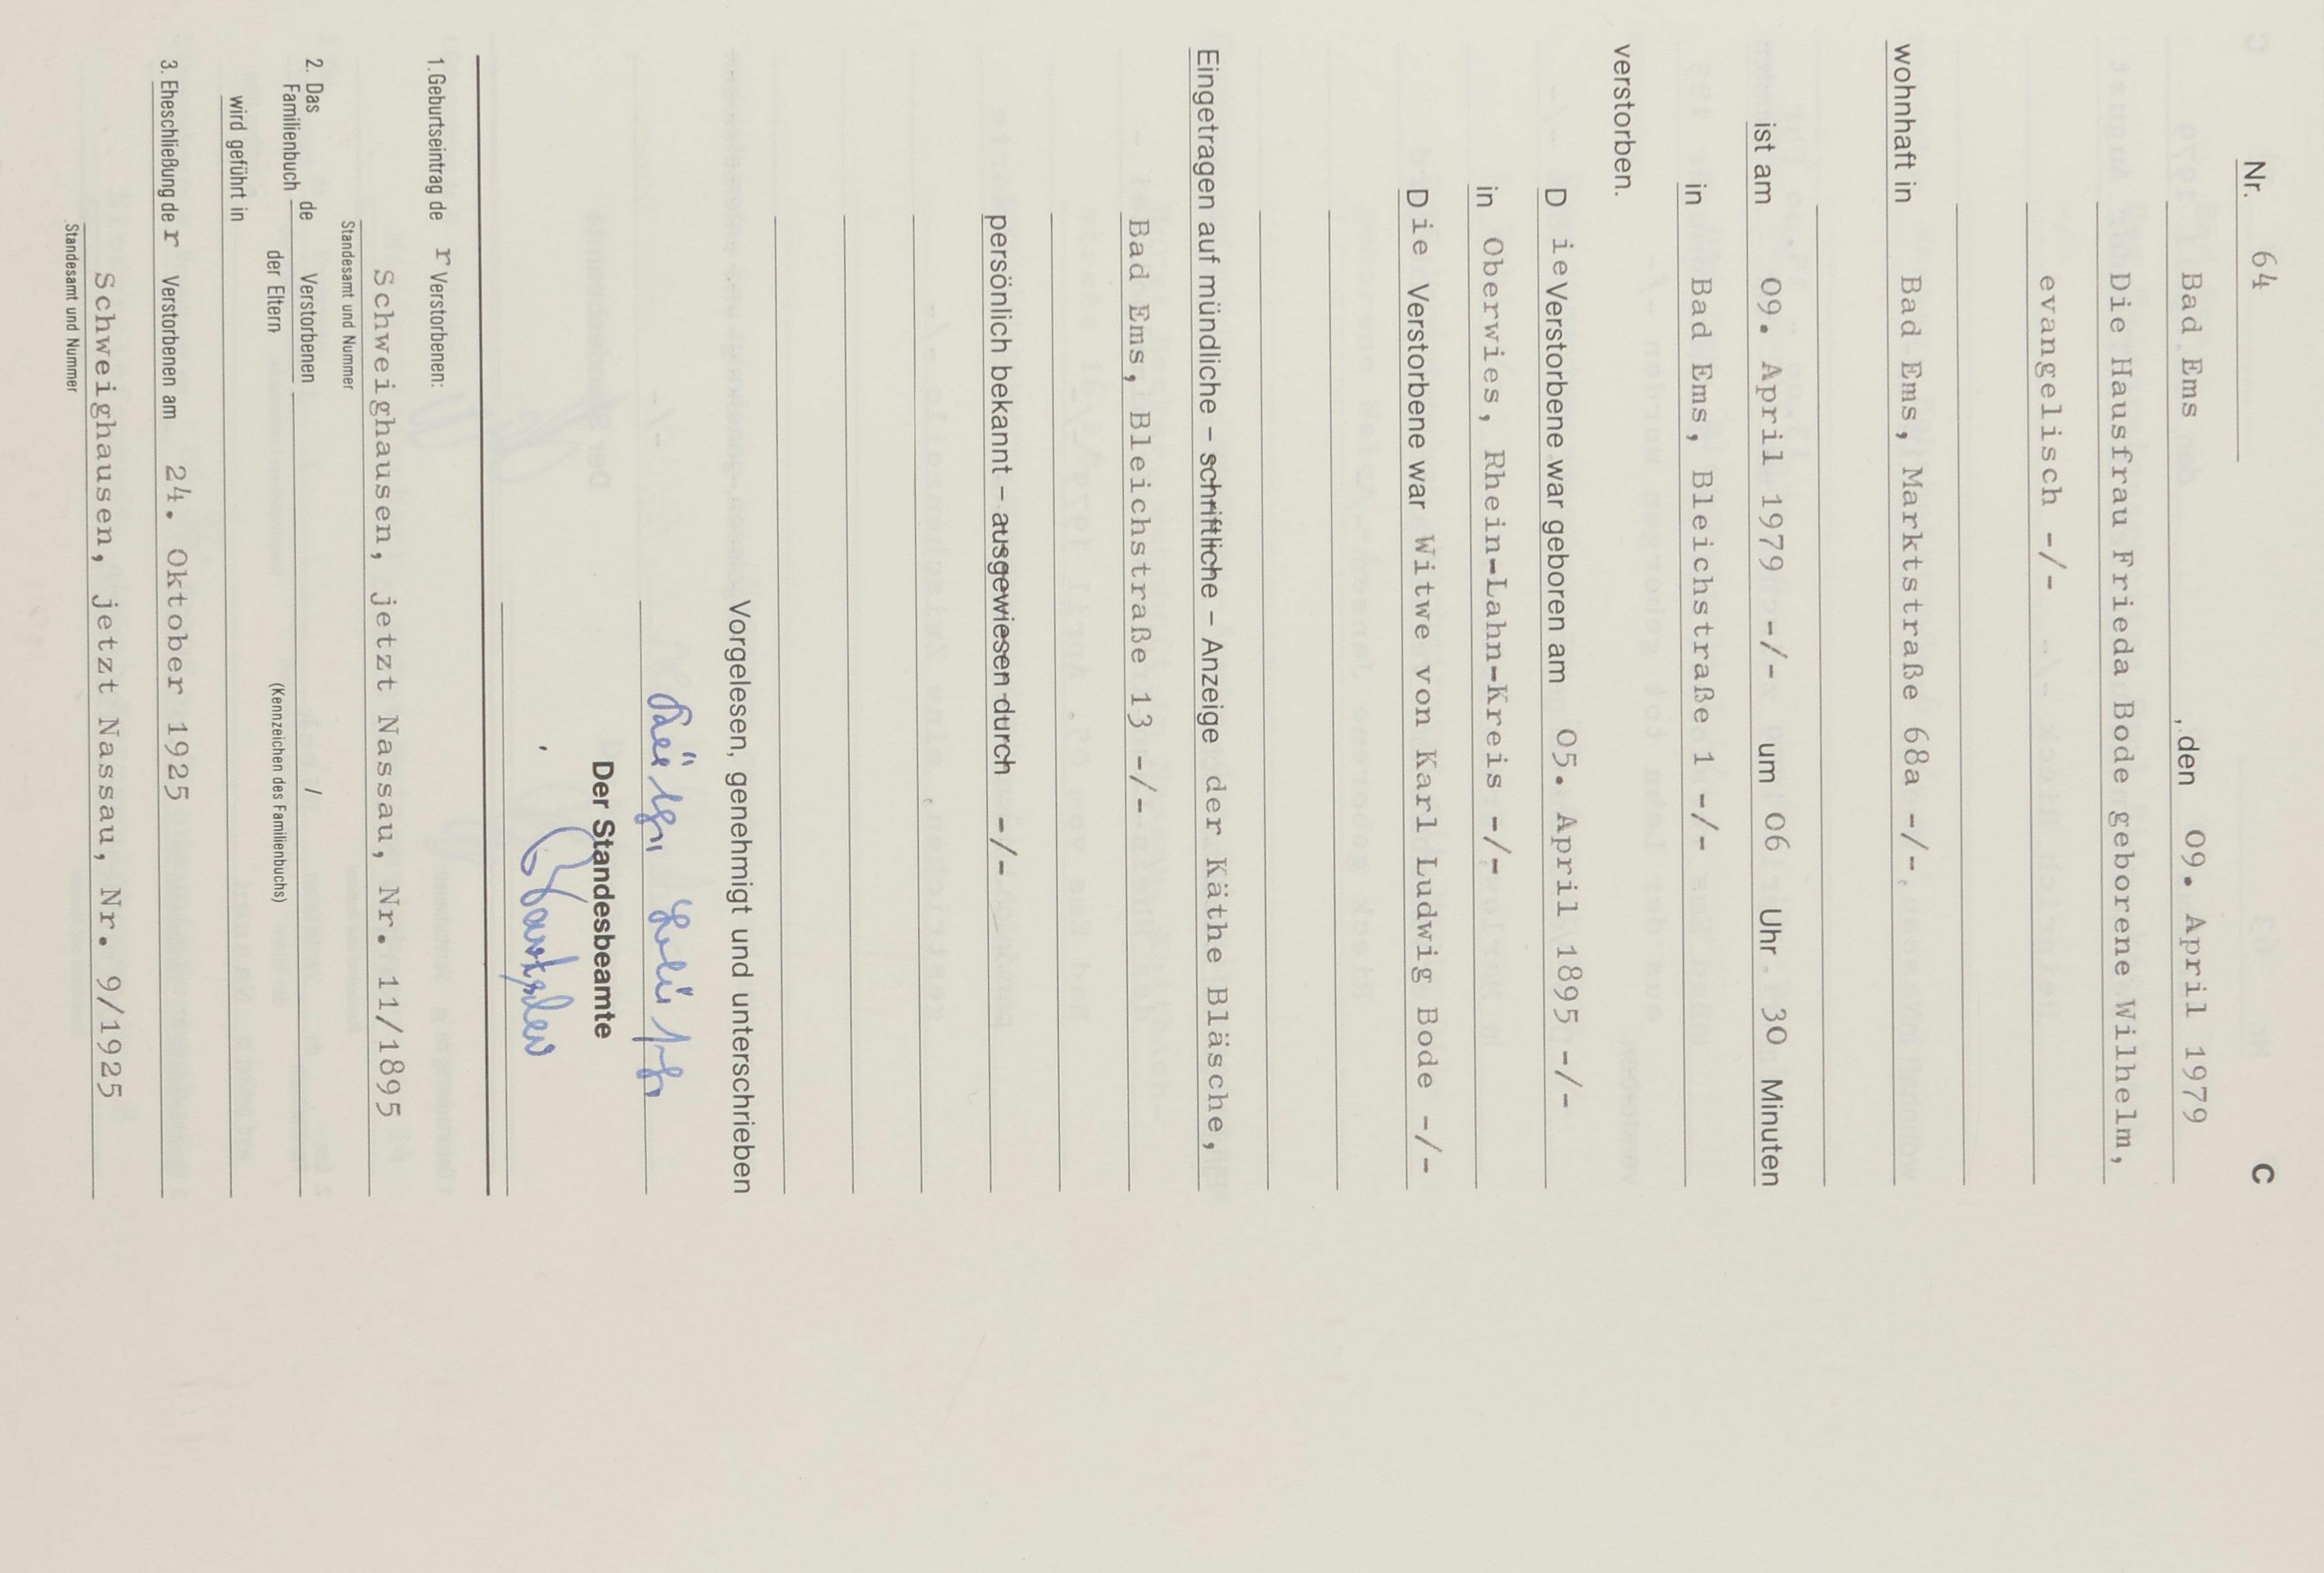 Nr. 64 C
Bad Ems , den 09. April 1979
Die Hausfrau Frieda Bode geborene Wilhelm,
evangelisch -/-
wohnhaft in Bad Ems, Marktstraße 68a -/-
ist am 09. April 1979 -/- um 06 Uhr 30 Minuten
in Bad Ems, Bleichstraße 1 -/-
verstorben.
D ie Verstorbene war geboren am 05. April 1895 -/-
in Oberwies, Rhein-Lahn-Kreis -/-
D ie Verstorbene war Witwe von Karl Ludwig Bode -/-
Eingetragen auf mündliche – schriftliche – Anzeige der Käthe Bläsche,
Bad Ems, Bleichstraße 13 -/-
persönlich bekannt – ausgewiesen durch -/-
Vorgelesen, genehmigt und unterschrieben
Der Standesbeamte
1. Geburtseintrag de r Verstorbenen:
Schweighausen, jetzt Nassau, Nr. 11/1895
Standesamt und Nummer
2. Das Familienbuch de Verstorbenen /
der Eltern (Kennzeichen des Familienbuchs)
wird geführt in
3. Eheschließung de r Verstorbenen am 24. Oktober 1925
Schweighausen, jetzt Nassau, Nr. 9/1925
Standesamt und Nummer